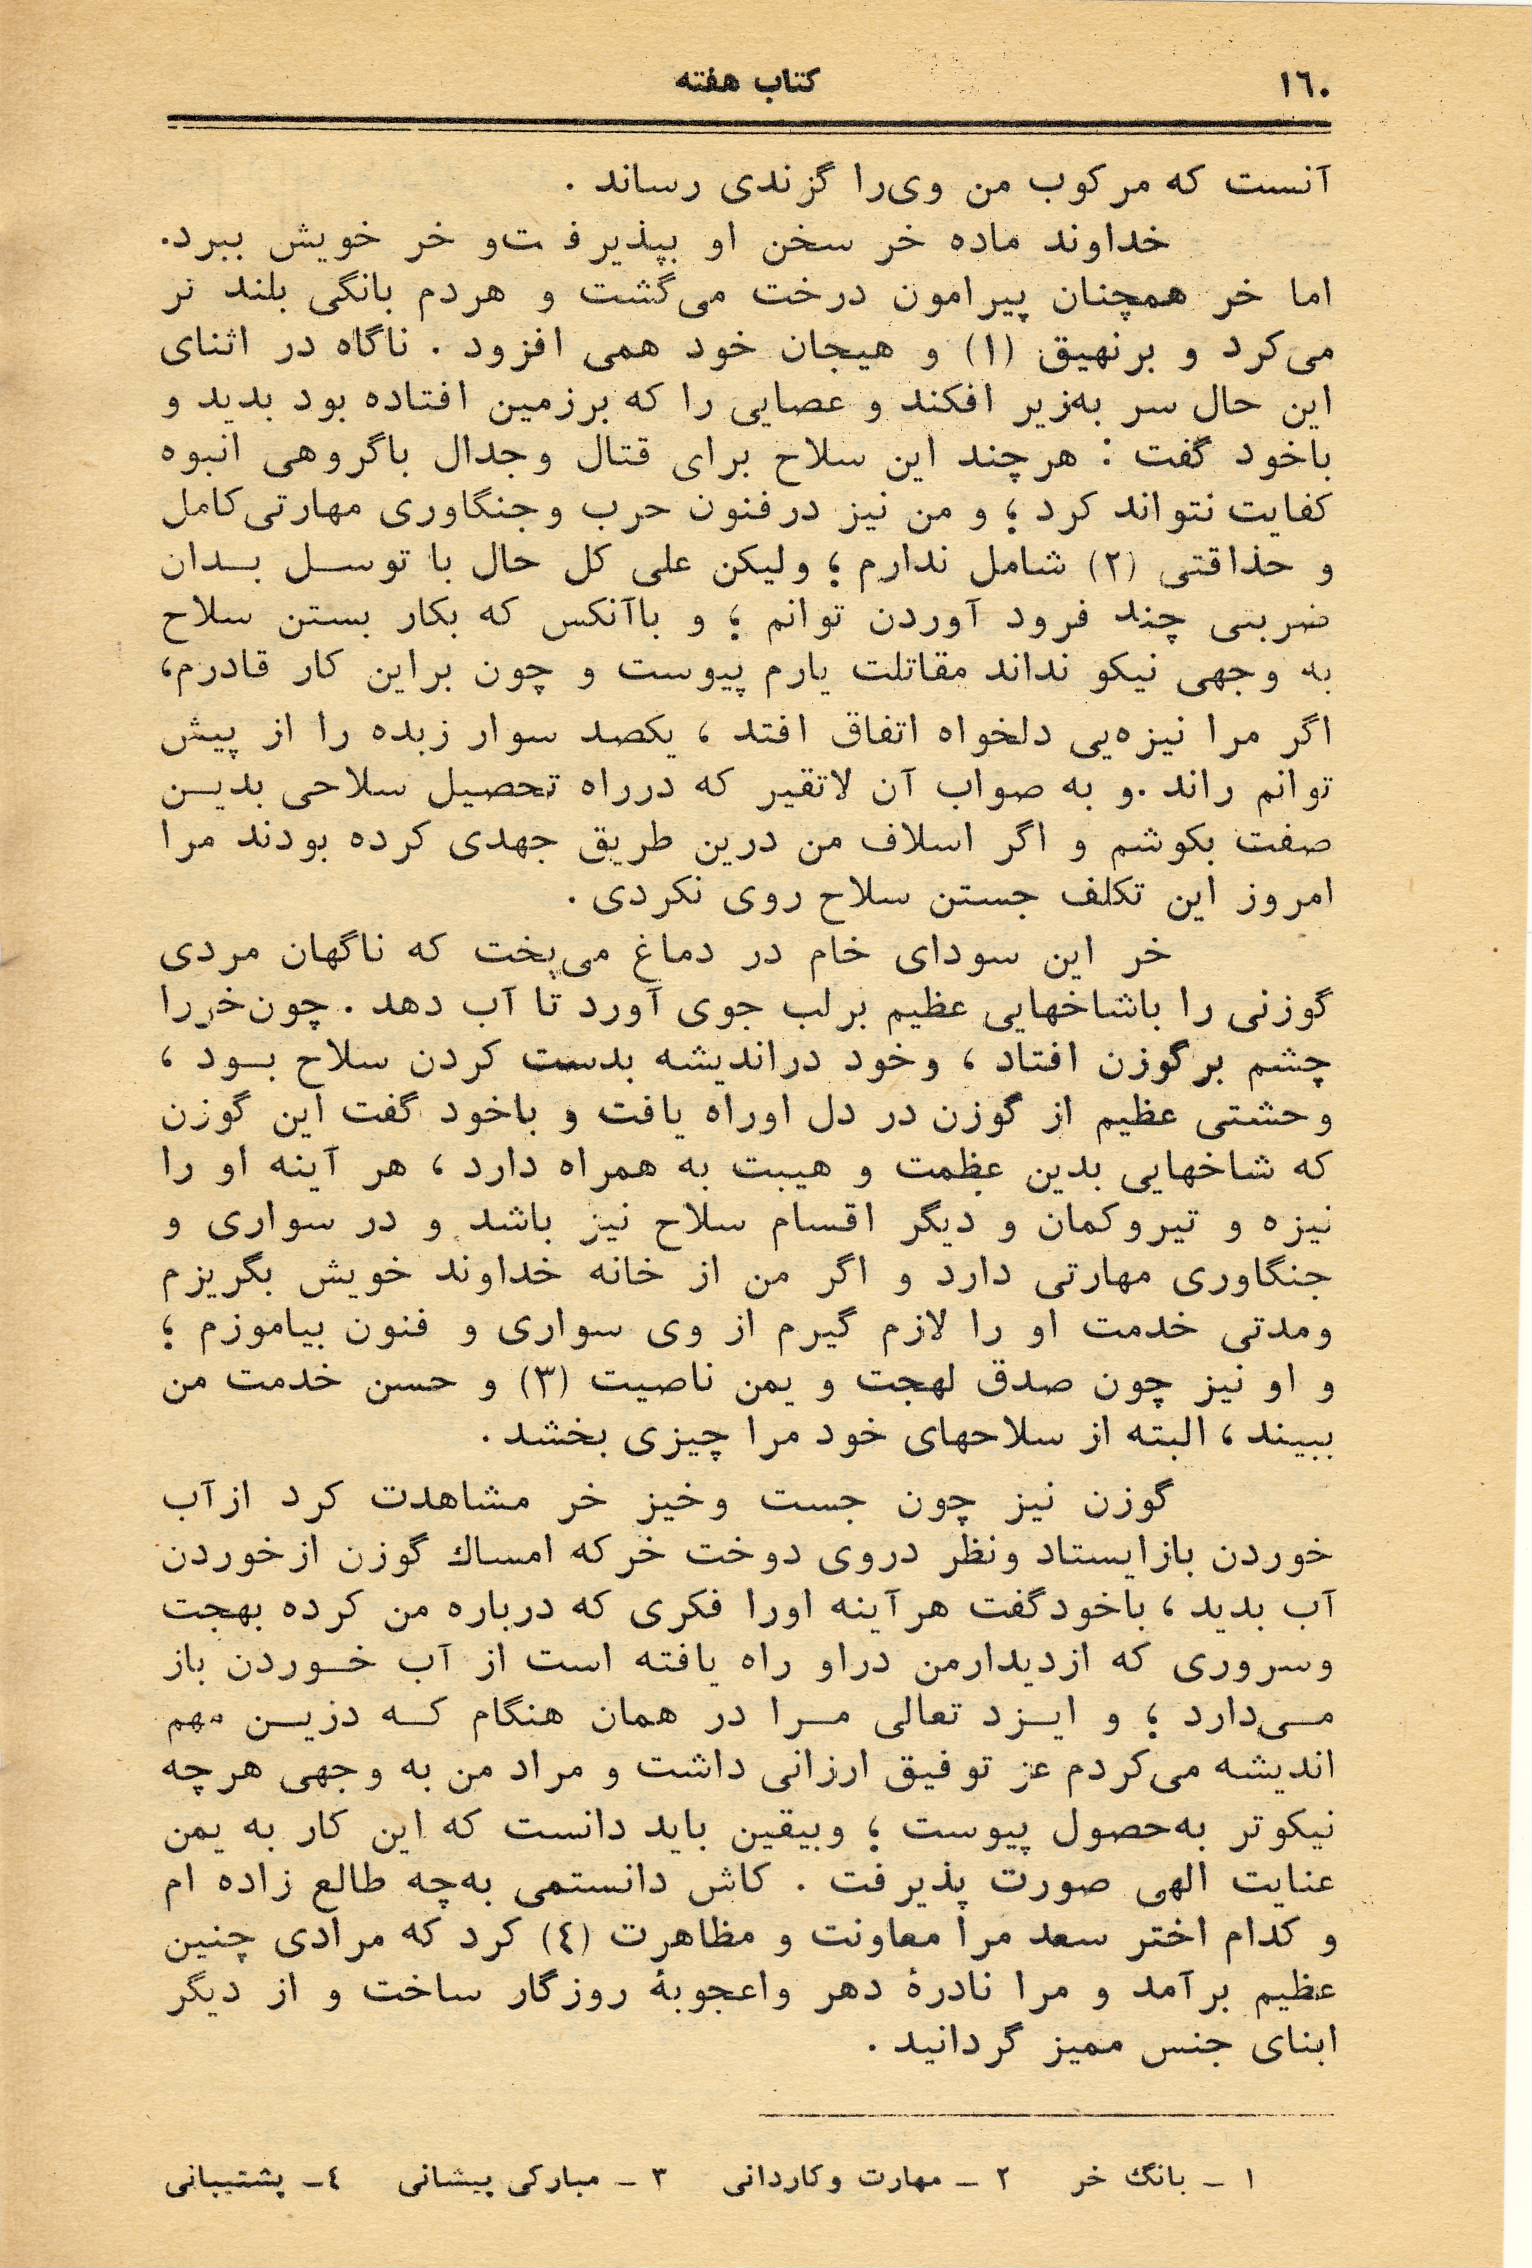 ١٦٠ کتاب هفته
آنست که مرکوب من وی‌را گزندی رساند .
خداوند ماده خر سخن او بپذیرفت‌و خر خویش ببرد.
اما خر همچنان پیرامون درخت می‌گشت و هردم بانگی بلند تر
می‌کرد و برنهیق (۱) و هیجان خود همی افزود . ناگاه در اثنای
این حال سر به‌زیر افکند و عصایی را که برزمین افتاده بود بدید و
باخود گفت : هرچند این سلاح برای قتال وجدال باگروهی انبوه
کفایت نتواند کرد ؛ و من نیز درفنون حرب وجنگاوری مهارتی‌کامل
و حذاقتی (۲) شامل ندارم ؛ ولیکن علی کل حال با توسل بدان
ضربتی چند فرود آوردن توانم ؛ و باآنکس که بکار بستن سلاح
به وجهی نیکو نداند مقاتلت یارم پیوست و چون براین کار قادرم،
اگر مرا نیزه‌یی دلخواه اتفاق افتد ، یکصد سوار زبده را از پیش
توانم راند .و به صواب آن لاتقیر که درراه تحصیل سلاحی بدین
صفت بکوشم و اگر اسلاف من درین طریق جهدی کرده بودند مرا
امروز این تکلف جستن سلاح روی نکردی .
خر این سودای خام در دماغ می‌پخت که ناگهان مردی
گوزنی را باشاخهایی عظیم برلب جوی آورد تا آب دهد . چون‌خررا
چشم برگوزن افتاد ، وخود دراندیشه بدست کردن سلاح بود ،
وحشتی عظیم از گوزن در دل اوراه یافت و باخود گفت این گوزن
که شاخهایی بدین عظمت و هیبت به همراه دارد ، هر آینه او را
نیزه و تیروکمان و دیگر اقسام سلاح نیز باشد و در سواری و
جنگاوری مهارتی دارد و اگر من از خانه خداوند خویش بگریزم
ومدتی خدمت او را لازم گیرم از وی سواری و فنون بیاموزم ؛
و او نیز چون صدق لهجت و یمن ناصیت (۳) و حسن خدمت من
ببیند ، البته از سلاحهای خود مرا چیزی بخشد .
گوزن نیز چون جست وخیز خر مشاهدت کرد ازآب
خوردن بازایستاد ونظر دروی دوخت خرکه امساك گوزن ازخوردن
آب بدید ، باخودگفت هرآینه اورا فکری که درباره من کرده بهجت
وسروری که ازدیدارمن دراو راه یافته است از آب خوردن باز
می‌دارد ؛ و ایزد تعالی مرا در همان هنگام که دزین مهم
اندیشه می‌کردم عز توفیق ارزانی داشت و مراد من به وجهی هرچه
نیکوتر به‌حصول پیوست ؛ وبیقین باید دانست که این کار به یمن
عنایت الهی صورت پذیرفت . کاش دانستمی به‌چه طالع زاده ام
و کدام اختر سعد مرا معاونت و مظاهرت (٤) کرد که مرادی چنین
عظیم برآمد و مرا نادرهٔ دهر واعجوبهٔ روزگار ساخت و از دیگر
ابنای جنس ممیز گردانید .
۱ ـ بانگ خر ۲ ـ مهارت وکاردانی ۳ ـ مبارکی پیشانی ٤ـ پشتیبانی